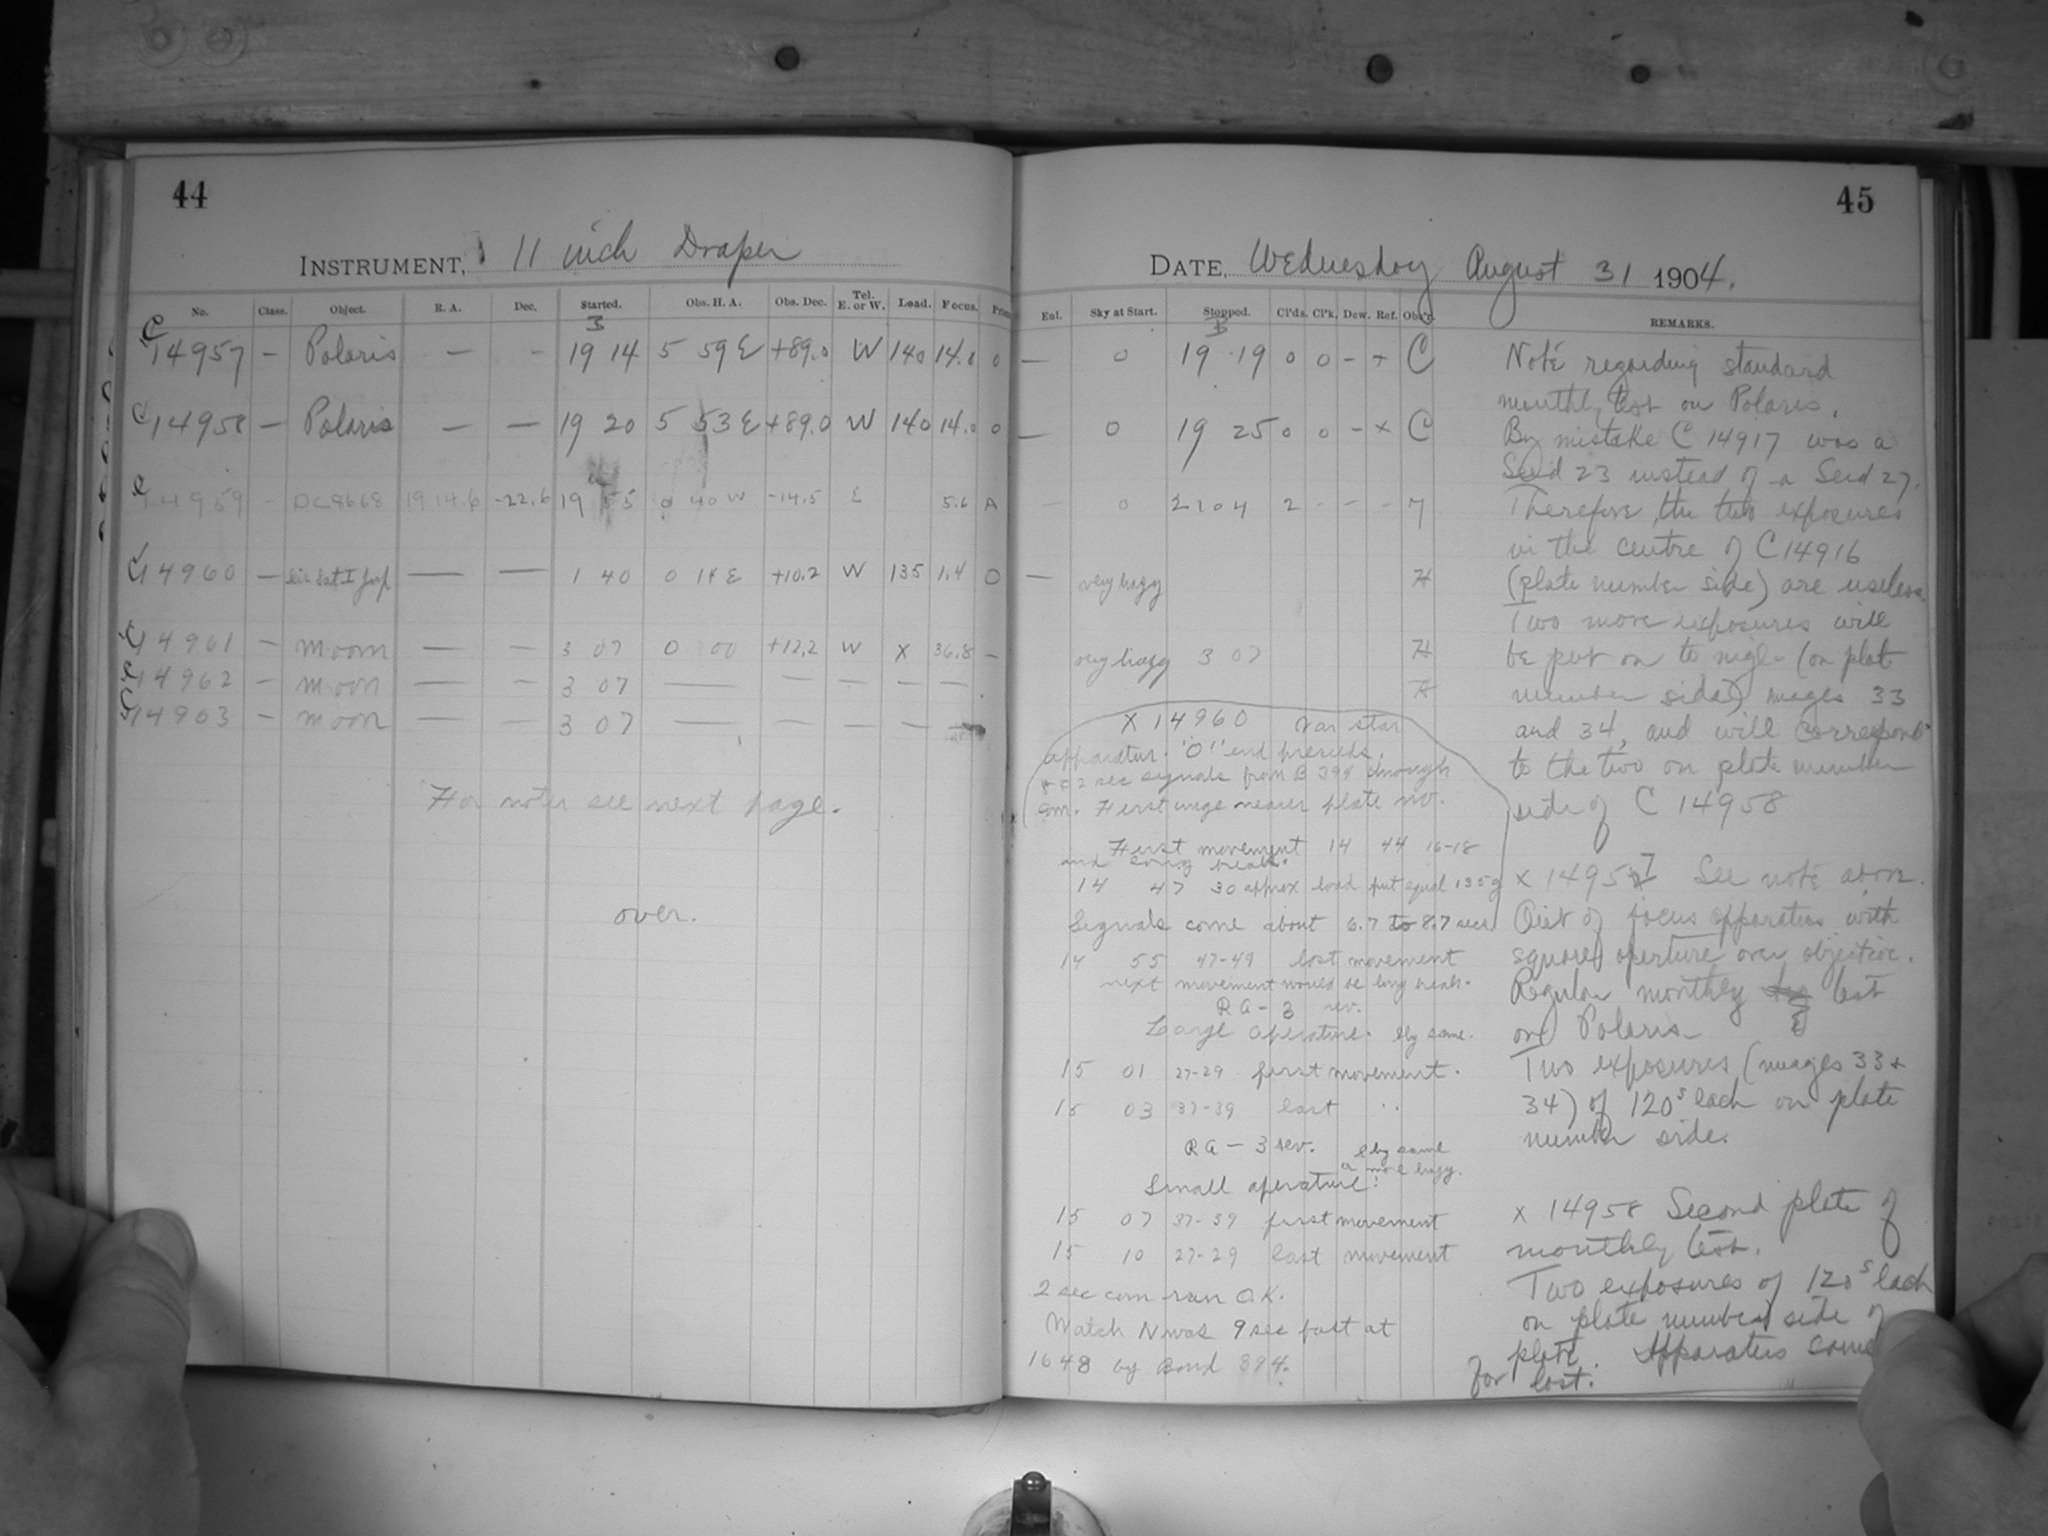 44
INSTRUMENT, 11 inch Draper
No. Class. Object. R. A. Dec. Started. Obs. H. A. Obs. Dec. Tel. E. or W. Load. Focus.
3
C 14957 — Polaris — - 19 14 5 59 E +89.0 W 140 14.0 0
C 14958 — Polaris — — 19 20 5 53 E +89.0 W 140 14.0 0
C 14959 - DC8668 19 14.6 -22.6 19 55 0 40 W -14.5 E 5.6 A
C 14960 — Sat I Jup — — 1 40 0 18 E +10.2 W 135 1.4 0
C 14961 — Moon — — 3 07 0 00 +12.2 W X 36.8 —
C 14962 — Moon — — 3 07 — — — — —
C 14963 — Moon — — 3 07 — — — — —
For notes see next page.
over.
45
DATE, Wednesday August 31 1904.
Ext. Sky at Start. Stopped. Cl'ds. Cl'k. Dew. Ref. Obs'r. REMARKS.
3
— 0 19 19 0 0 - + C
— 0 19 25 0 0 - x C
— 0 2204 2 - - - 7
— very hazy H
very hazy 3 07 H
H
X 14960 Var star
apparatus. "0" end preceeds.
2 sec signals from B 394 through
com. First image nearer plate no.
First movement 14 44 16-18
and long break.
14 47 30 approx load put equal 135g
Signals come about 6.7 to 8.7 secs.
14 55 47-49 last movement
next movement would be long break.
RA - 3 rev.
Large aperature. Sky same.
15 01 27-29 first movement.
15 03 37-39 last "
RA — 3 rev. Sky same
a more hazy.
Small aperature:
15 07 37-39 first movement
15 10 27-29 last movement
2 sec com ran O.K.
Watch N was 9 sec fast at
1648 by Bond 394.
Note regarding standard
monthly test on Polaris.
By mistake C 14917 was a
Seed 23 instead of a Seed 27.
Therefore, the two exposures
in the centre of C14916
(plate number side) are useless.
Two more exposures will
be put on to night (on plate
number side) images 33
and 34, and will correspond
to the two on plate number
side of C 14958
x 14957 See note above.
Out of focus apparatus with
square aperture over objective.
Regular monthly test
on Polaris
Two exposures (images 33 +
34) of 120s each on plate
number side.
x 14958 Second plate of
monthly test.
Two exposures of 120s each
on plate number side of
plate. Apparatus same
for last.